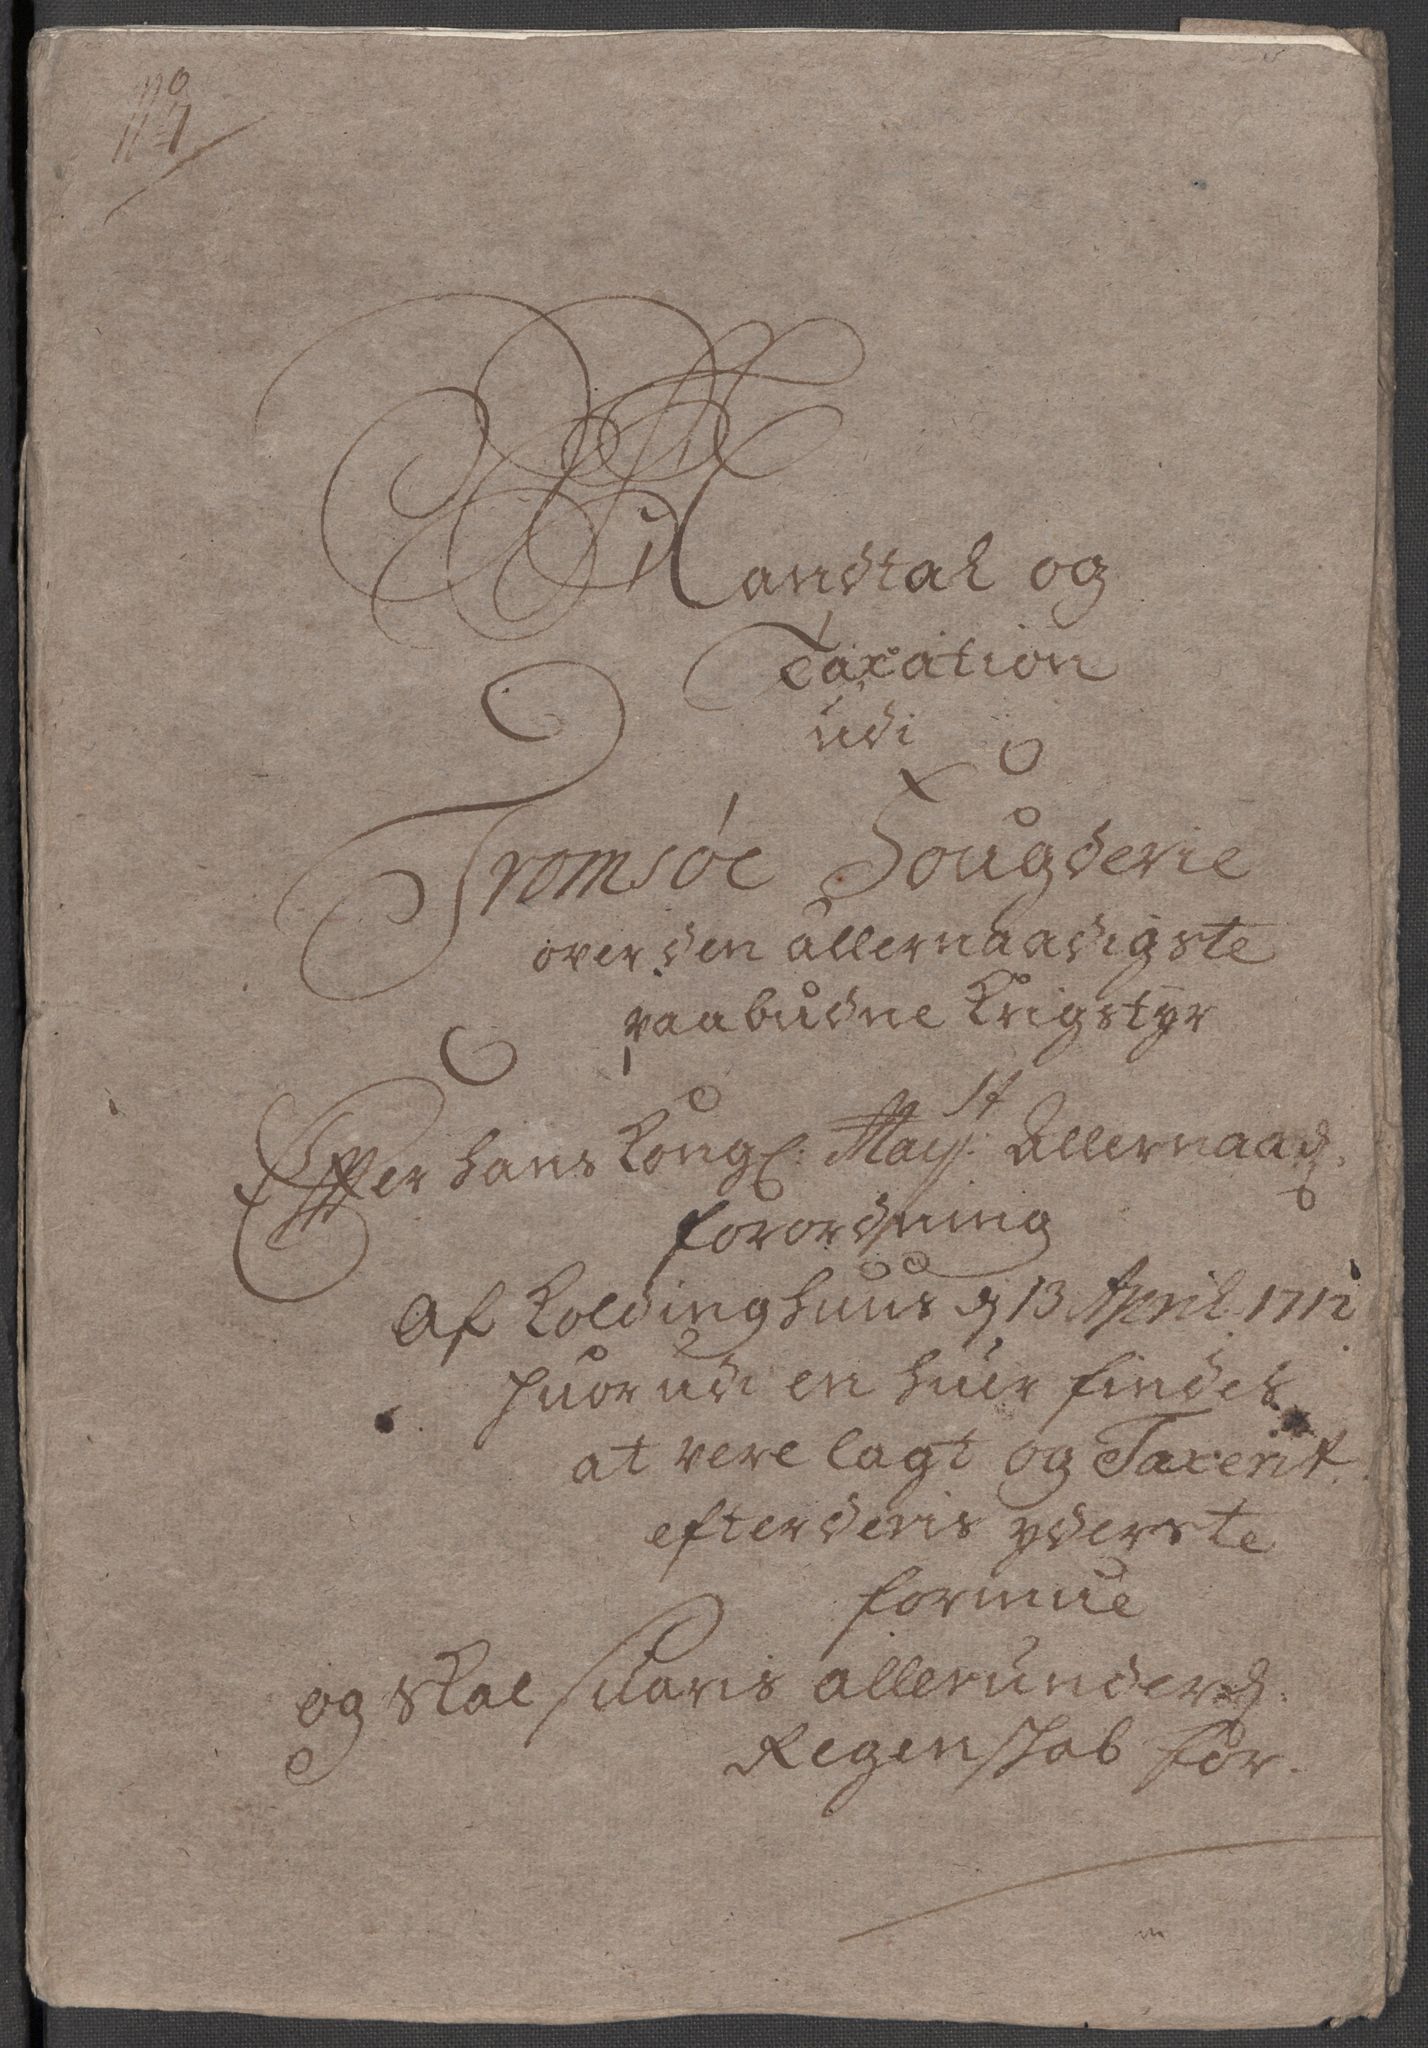 No 7
Mandtal og
Taxation
udi
Tromsøe Fougderie
over den allernaadigste
paabudne Krigstyr
Effter hans Kongl: Mayst: Allernaad:
forordning
Af Koldinghuus d 13 April 1712
huorudi en huer findes
at vere lagt og Taxerit
efter deris yderste
formue
og skal suaris allerunderd:
Regenskab for.